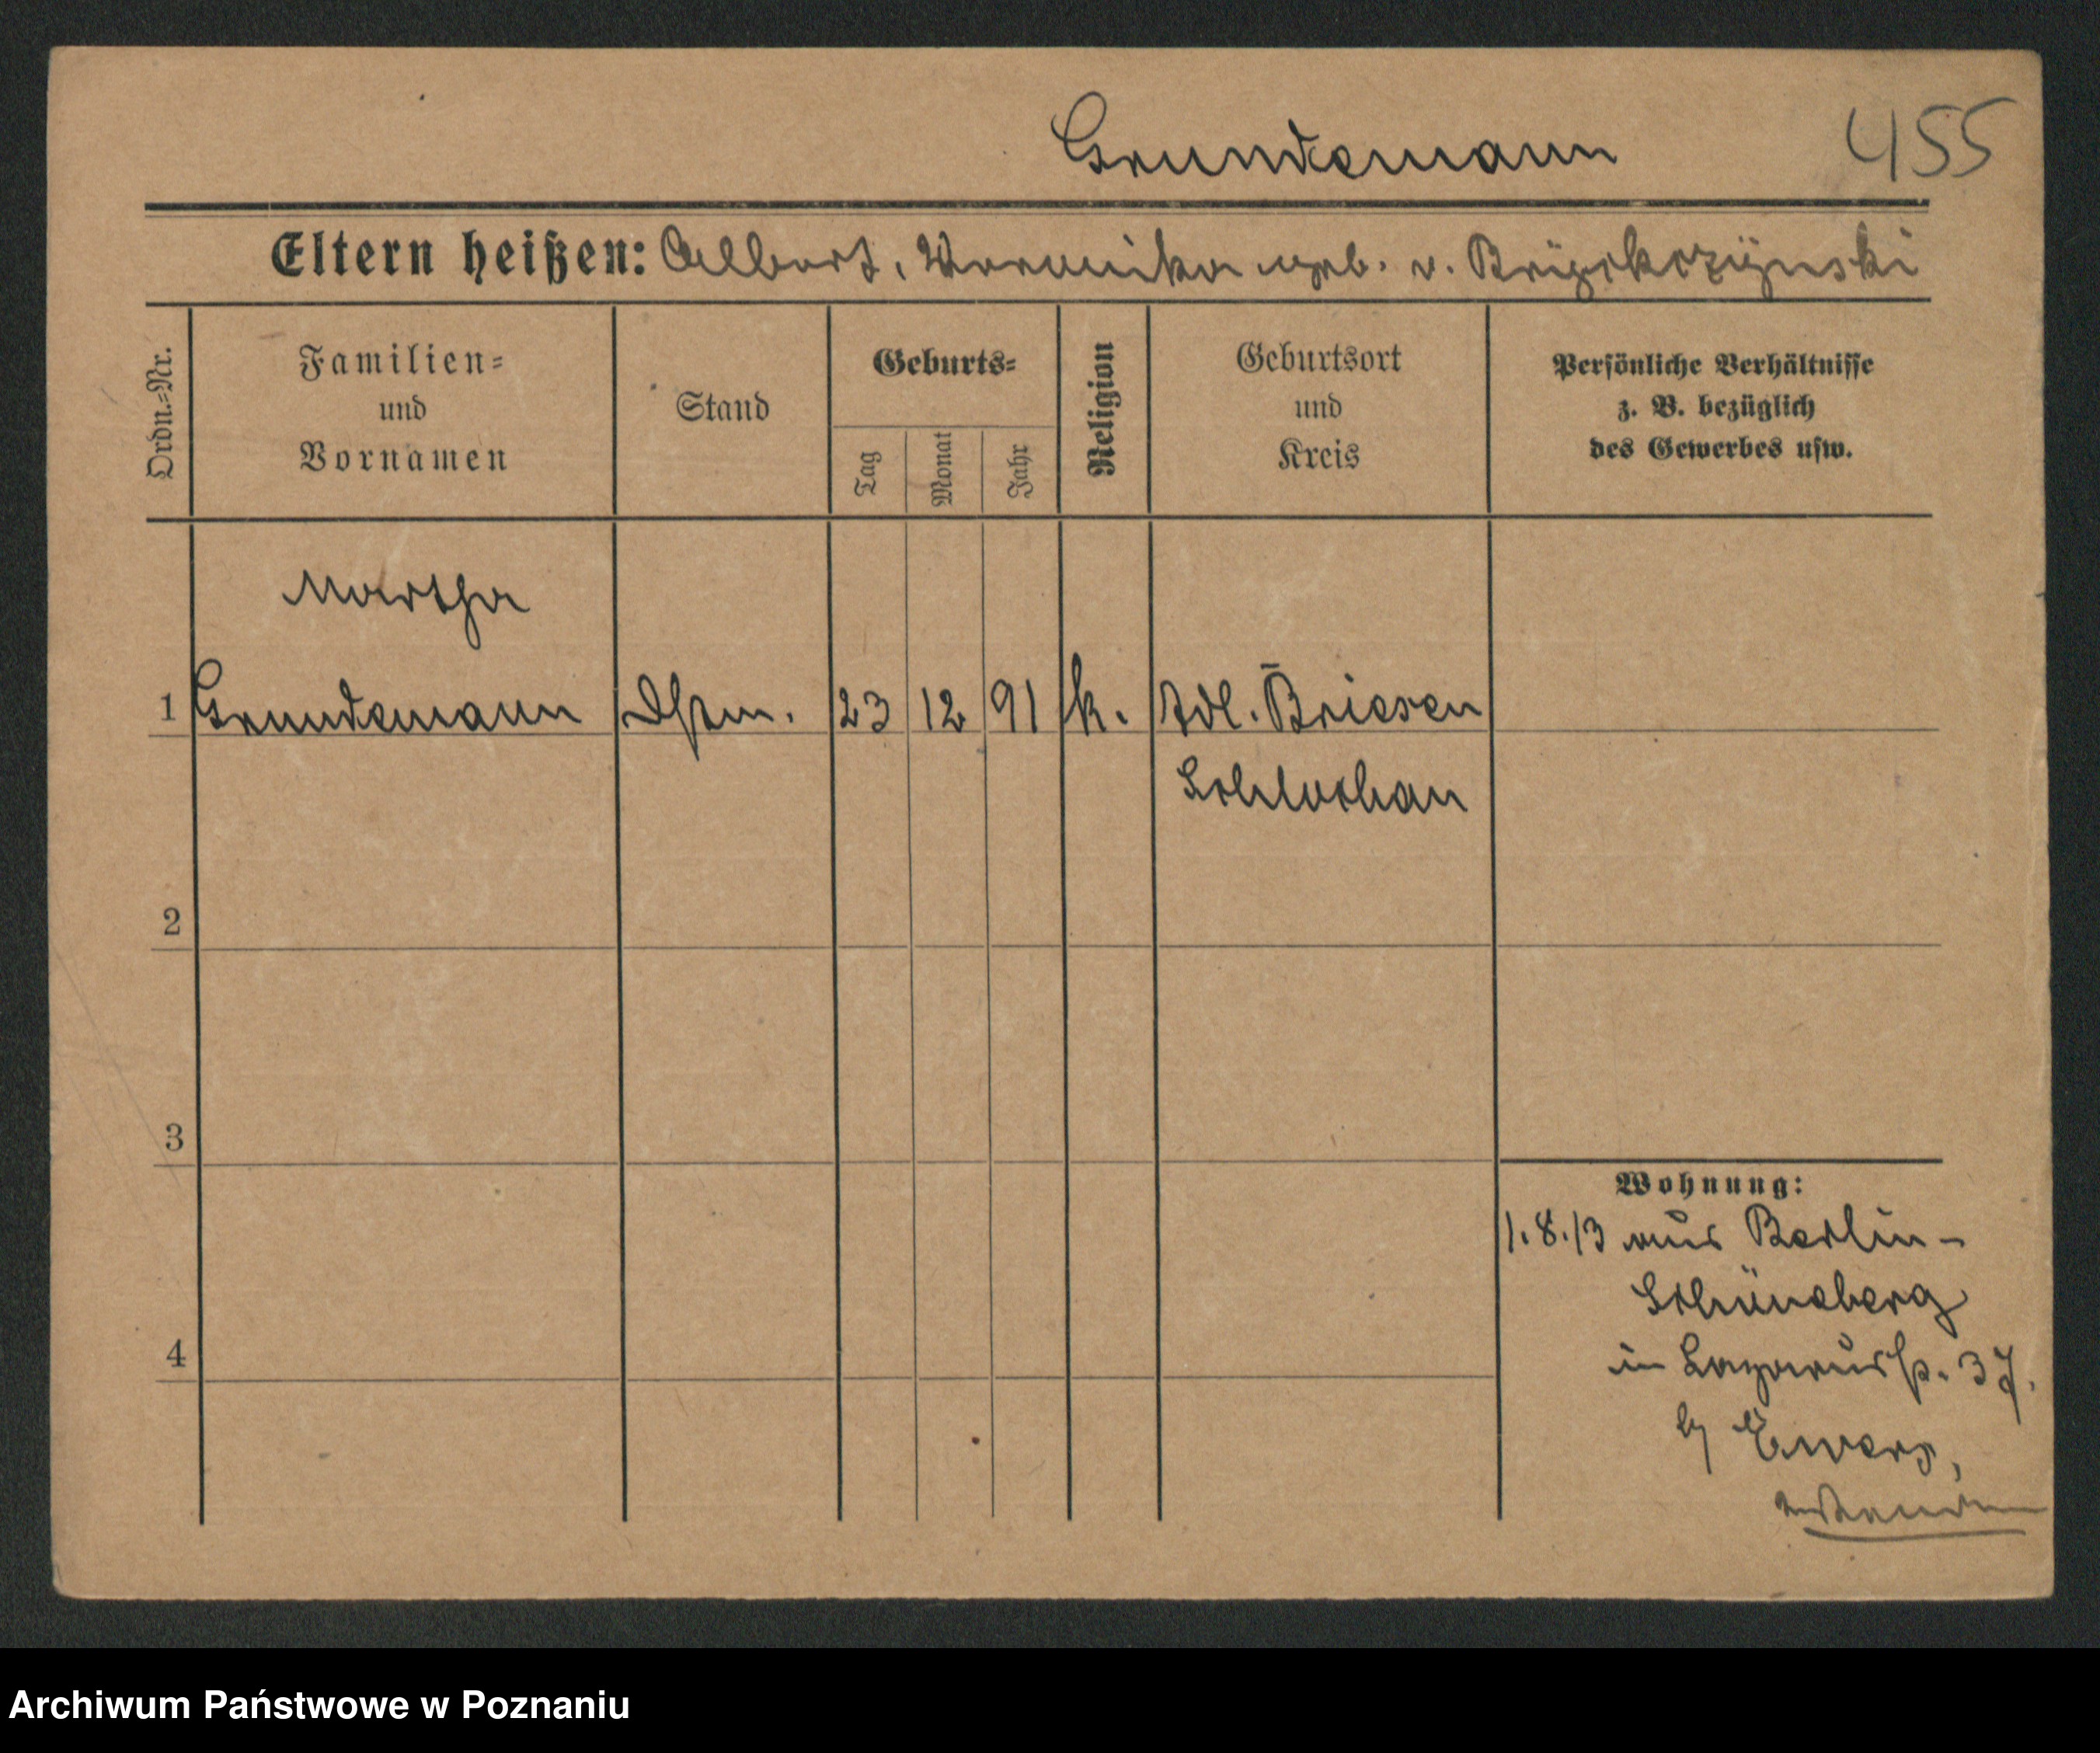 Grundemann 455
Eltern heißen: Albert, Veronika geb. v.
Ordn.-Nr.
Familien-
und
Vornamen
Stand
Geburts-
Tag
Monat
Jahr
Religion
Geburtsort
und
Kreis
Persönliche Verhältnisse
z. B. bezüglich
des Gewerbes usw.
Martha
1 Grundemann 23 12 91 k. Adl. Briesen
Schlochau
2
3
4
Wohnung:
1.8.13 aus Berlin-
Schöneberg
in Lazarusstr. 37.
b/ Ewers,
Archiwum Państwowe w Poznaniu